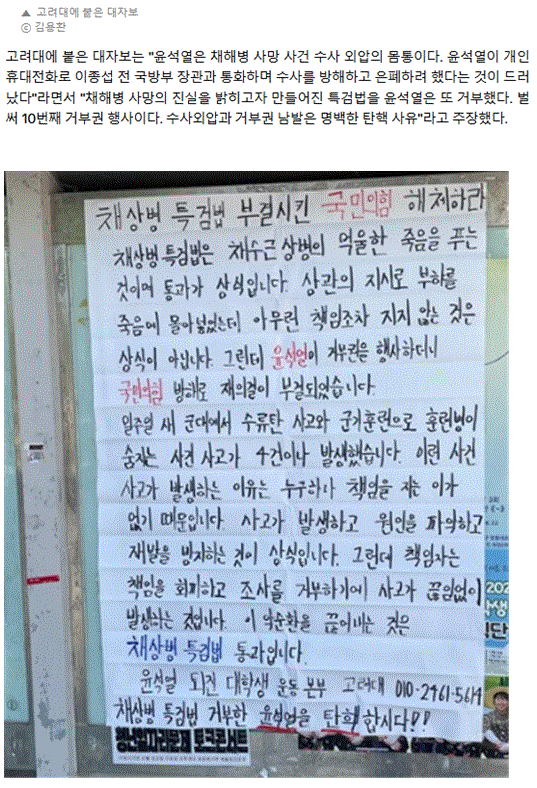 ▲ 고려대에 붙은 대자보
ⓒ 김용환
고려대에 붙은 대자보는 "윤석열은 채해병 사망 사건 수사 외압의 몸통이다. 윤석열이 개인
휴대전화로 이종섭 전 국방부 장관과 통화하며 수사를 방해하고 은폐하려 했다는 것이 드러
났다"라면서 "채해병 사망의 진실을 밝히고자 만들어진 특검법을 윤석열은 또 거부했다. 벌
써 10번째 거부권 행사이다. 수사외압과 거부권 남발은 명백한 탄핵 사유"라고 주장했다.
채상병 특검법 부결시킨 국민의힘 해체하라
채상병 특검법은 채수근 상병의 억울한 죽음을 푸는
것이며 통과가 상식입니다. 상관의 지시로 부하를
죽음에 몰아넣었는데 아무런 책임조차 지지 않는 것은
상식이 아닙니다. 그런데 윤석열이 거부권을 행사하더니
국민의힘 방해로 재의결이 부결되었습니다.
일주일 새 군대에서 수류탄 사고와 군기훈련으로 훈련병이
숨지는 사건 사고가 4건이나 발생했습니다. 이런 사건
사고가 발생하는 이유는 누구하나 책임을 지는 이가
없기 때문입니다. 사고가 발생하고 원인을 파악하고
재발을 방지하는 것이 상식입니다. 그런데 책임자는
책임을 회피하고 조사를 거부하기에 사고가 끊임없이
발생하는 것입니다. 이 악순환을 끊어내는 것은
채상병 특검법 통과입니다.
윤석열 퇴진 대학생 운동 본부 고려대 010-2961-5614
채상병 특검법 거부한 윤석열을 탄핵합시다!!
청년일자리문제 토크콘서트